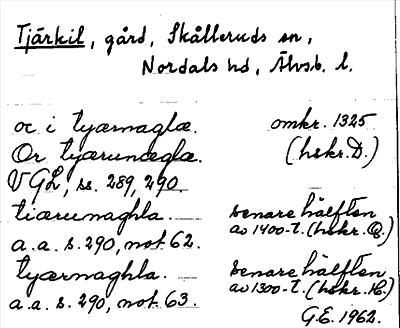 Tjärkil, gård, Skålleruds sn,
Nordals hd, Älvsb. l.
oc i tyærnaglæ. omkr. 1325
Or tyærunæglæ. (hskr. D.)
VGL, ss. 289, 290
tiærunaghla. senare hälften
a.a. s. 290, not 62. av 1400-t. (hskr. Q.)
tyærnaghla. senare hälften
a.a. s. 290, not 63. av 1300-t. (hskr. H.)
G.E. 1962.